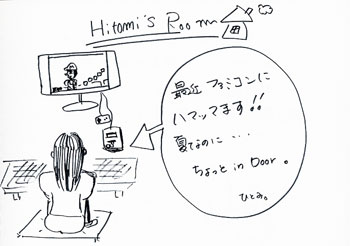 Hitomi's Room
最近 ファミコンに
ハマッてます!!
夏なのに・・・
ちょっと in Door。
ひとみ。